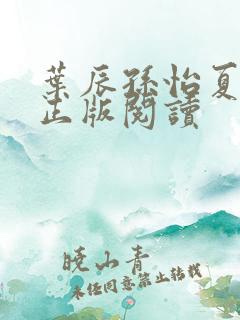 葉辰孫怡夏
正版閱讀
曉山青
未经同意禁止转载